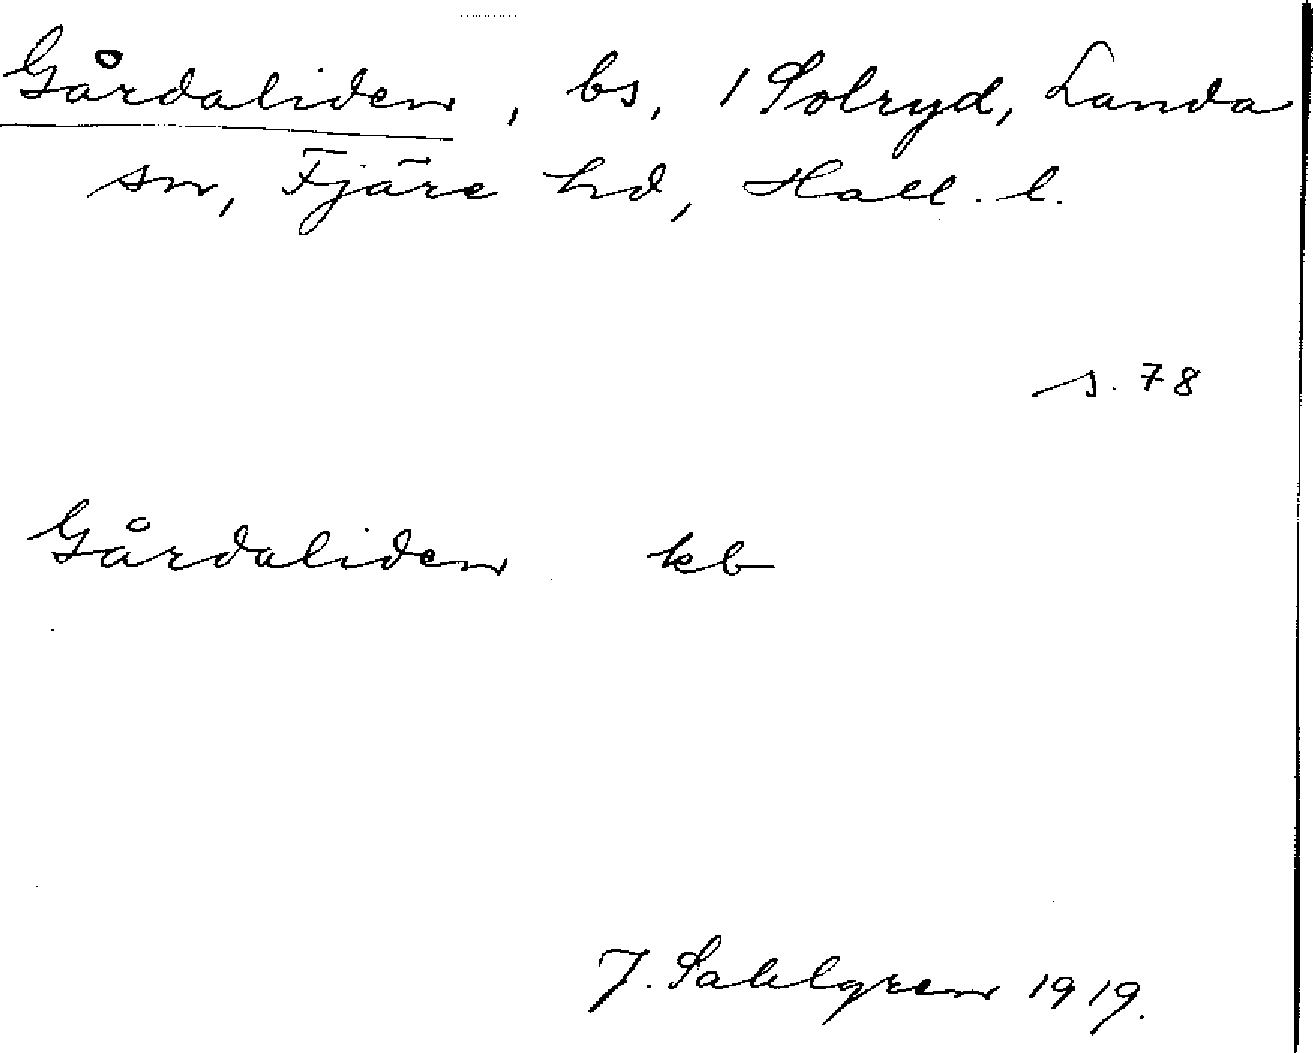 Gårdaliden, bs, 1 Solryd, Landa
sn, Fjäre hd, Hall. l.
s. 78
Gårdaliden kb
J. Sahlgren 1919.